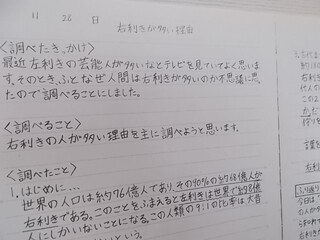 月 26 日
右利きが多い理由
<調べたき、かけ>
最近左利きの芸能人が多いなとテレビを見ていてよく思いま
す。そのとき、ふとなぜ人間は右利きが多いのか不思議に思
たので調べることにしました。
<調べること>
右利きの人が多い理由を主に調べようと思います。
<調べたこと>
1. はじめに…
世界の人口は約76億人であり、その90%の約68億人が
右利きである。このことをふまえると左利きは世界で約8億
人にしかいないことになる。この人類の9:1の比率は大昔